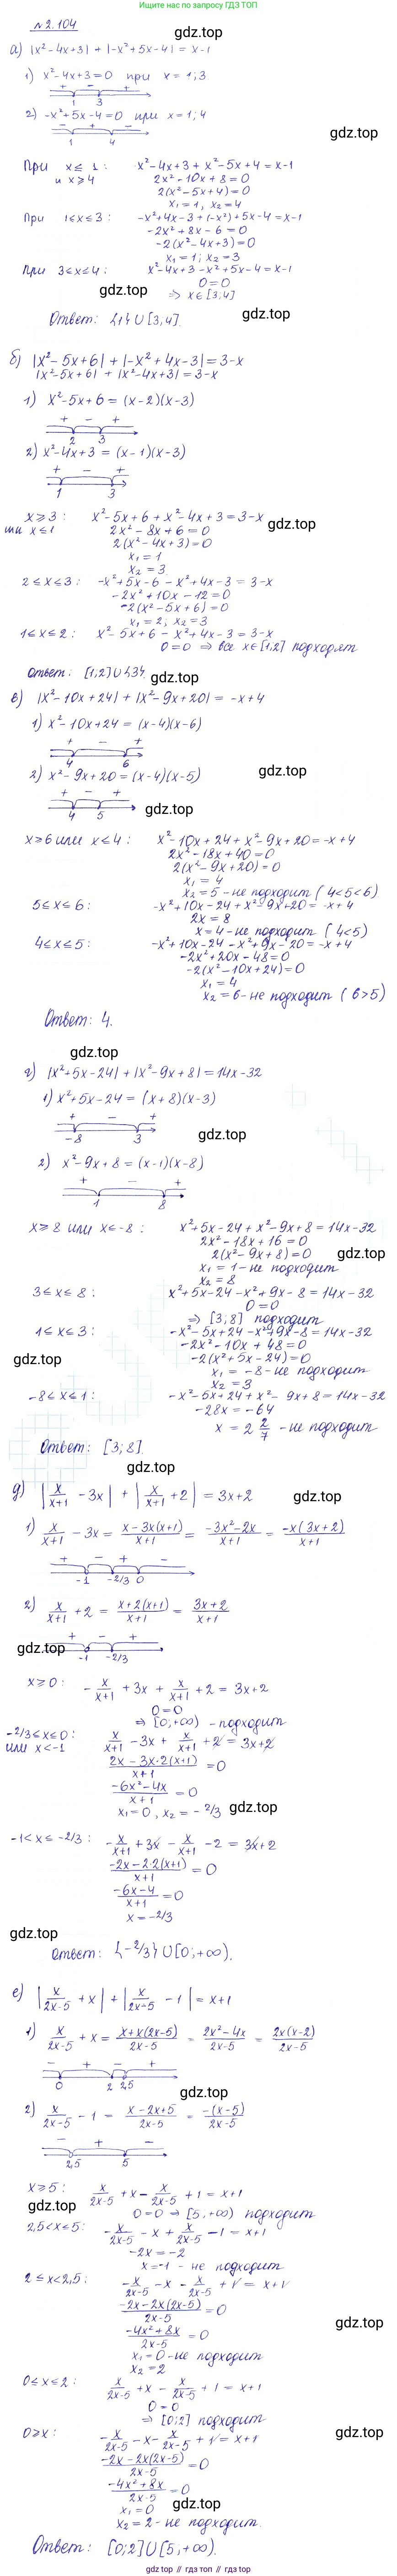 Найти решения по запросу ГДЗ ТОП
№2.104
gdz.top
а) |x²-4x+3| + |-x²+5x-4| = x-1
1) x²-4x+3=0 при x=1;3.
+ - +
1 3
2) -x²+5x-4=0 при x=1;4
- + -
1 4
gdz.top
При x≤1: x²-4x+3+x²-5x+4=x-1
и x≥4 2x²-10x+8=0
2(x²-5x+4)=0
x₁=1, x₂=4
При 1≤x≤3: -x²+4x-3+(-x²)+5x-4=x-1
-2x²+8x-6=0
-2(x²-4x+3)=0
x₁=1; x₂=3
при 3≤x≤4: x²-4x+3-x²+5x-4=x-1
gdz.top 0=0
⇒ x∈[3,4]
Ответ: {1}∪[3,4]. gdz.top
б) |x²-5x+6|+|-x²+4x-3|=3-x
|x²-5x+6| + |x²-4x+3|=3-x
1) x²-5x+6=(x-2)(x-3)
+ - +
2 3
2) x²-4x+3=(x-1)(x-3)
+ - +
1 3
x≥3: x²-5x+6+x²-4x+3=3-x
gdz.top
или x≤1 2x²-8x+6=0
2(x²-4x+3)=0
x₁=1
x₂=3
2≤x≤3: -x²+5x-6-x²+4x-3=3-x
-2x²+10x-12=0
-2(x²-5x+6)=0
x₁=2, x₂=3
1≤x≤2: x²-5x+6-x²+4x-3=3-x
0=0 ⇒ все x∈[1,2] подходят
Ответ: [1,2]∪{3}. gdz.top
в) |x²-10x+24|+|x²-9x+20|=-x+4
1) x²-10x+24=(x-4)(x-6)
+ - +
4 6
2) x²-9x+20=(x-4)(x-5) gdz.top
+ - +
4 5 gdz.top
x≥6 или x≤4: x²-10x+24+x²-9x+20=-x+4
2x²-18x+40=0
2(x²-9x+20)=0
x₁=4
x₂=5-не подходит (4<5<6)
5≤x≤6: -x²+10x-24+x²-9x+20=-x+4
2x=8
x=4-не подходит (4<5)
4≤x≤5: -x²+10x-24-x²+9x-20=-x+4
-2x²+20x-48=0
-2(x²-10x+24)=0
x₁=4
x₂=6-не подходит (6>5)
Ответ: 4.
gdz.top
г) |x²+5x-24|+|x²-9x+8|=14x-32
1) x²+5x-24=(x+8)(x-3)
+ - +
-8 3 gdz.top
2) x²-9x+8=(x-1)(x-8)
+ - +
1 8
x≥8 или x≤-8: x²+5x-24+x²-9x+8=14x-32
2x²-18x+16=0
2(x²-9x+8)=0 gdz.top
x₁=1-не подходит
x₂=8
3≤x≤8: x²+5x-24-x²+9x-8=14x-32
0=0
⇒ [3;8] подходит
1≤x≤3: -x²-5x+24-x²+9x-8=14x-32
-2x²-10x+48=0
gdz.top -2(x²+5x-24)=0
x₁=-8-не подходит
x₂=3
-8≤x≤1: -x²-5x+24+x²-9x+8=14x-32
-28x=-64
x=2 2/7 -не подходит
Ответ: [3;8].
gdz.top
д) |x/(x+1) - 3x| + |x/(x+1) + 2| = 3x+2 gdz.top
1) x/(x+1) - 3x = (x-3x(x+1))/(x+1) = (-3x²-2x)/(x+1) = (-x(3x+2))/(x+1)
+ - + -
-1 -2/3 0
2) x/(x+1) + 2 = (x+2(x+1))/(x+1) = (3x+2)/(x+1)
gdz.top
+ - +
-1 -2/3
x≥0: -x/(x+1) + 3x + x/(x+1) + 2 = 3x+2
0=0
⇒ [0;+∞) - подходит
-2/3≤x≤0: x/(x+1) - 3x + x/(x+1) + 2 = 3x+2
или x<-1 (2x-3x·2(x+1))/(x+1) = 0
(-6x²-4x)/(x+1) = 0
x₁=0, x₂=-2/3 gdz.top
-1<x≤-2/3: -x/(x+1) + 3x - x/(x+1) - 2 = 3x+2
(-2x-2·2(x+1))/(x+1) = 0
(-6x-4)/(x+1) = 0
x=-2/3
gdz.top
Ответ: {-2/3}∪[0;+∞).
е) |x/(2x-5) + x| + |x/(2x-5) - 1| = x+1
gdz.top
1) x/(2x-5) + x = (x+x(2x-5))/(2x-5) = (2x²-4x)/(2x-5) = (2x(x-2))/(2x-5)
- + - +
0 2 2,5
gdz.top
2) x/(2x-5) - 1 = (x-2x+5)/(2x-5) = (-(x-5))/(2x-5)
- + -
2,5 5
x≥5: x/(2x-5) + x - x/(2x-5) + 1 = x+1
gdz.top 0=0 ⇒ [5,+∞) подходит
2,5<x≤5: -x/(2x-5) - x + x/(2x-5) - 1 = x+1
-2x=-2
x=-1 - не подходит
2≤x<2,5: -x/(2x-5) - x - x/(2x-5) + 1 = x+1
(-2x-2x(2x-5))/(2x-5) = 0
gdz.top
(-4x²+8x)/(2x-5) = 0
x₁=0-не подходит
x₂=2
0≤x≤2: x/(2x-5) + x - x/(2x-5) + 1 = x+1
0=0
⇒ [0;2] подходит
0≥x: -x/(2x-5) - x - x/(2x-5) + 1 = x+1
gdz.top
(-2x-2x(2x-5))/(2x-5) = 0
(-4x²+8x)/(2x-5) = 0
x₁=0 gdz.top
x₂=2-не подходит.
Ответ: [0;2]∪[5,+∞).
gdz.top // gdz.top // gdz.top